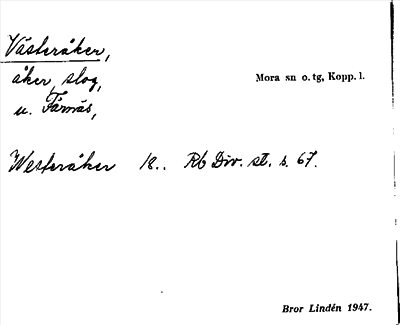 Västeråker,
åker, slog,
Mora sn o. tg, Kopp. l.
u. Färnäs,
Westeråker 18.. Rb Div. st. s. 67.
Bror Lindén 1947.